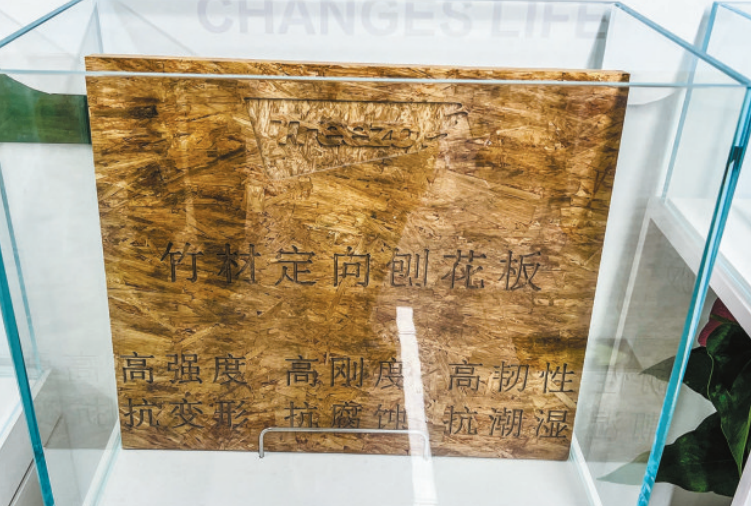 CHANGES LIFE
Treezo
竹材定向刨花板
高强度 高刚度 高韧性
抗变形 抗腐蚀 抗潮湿